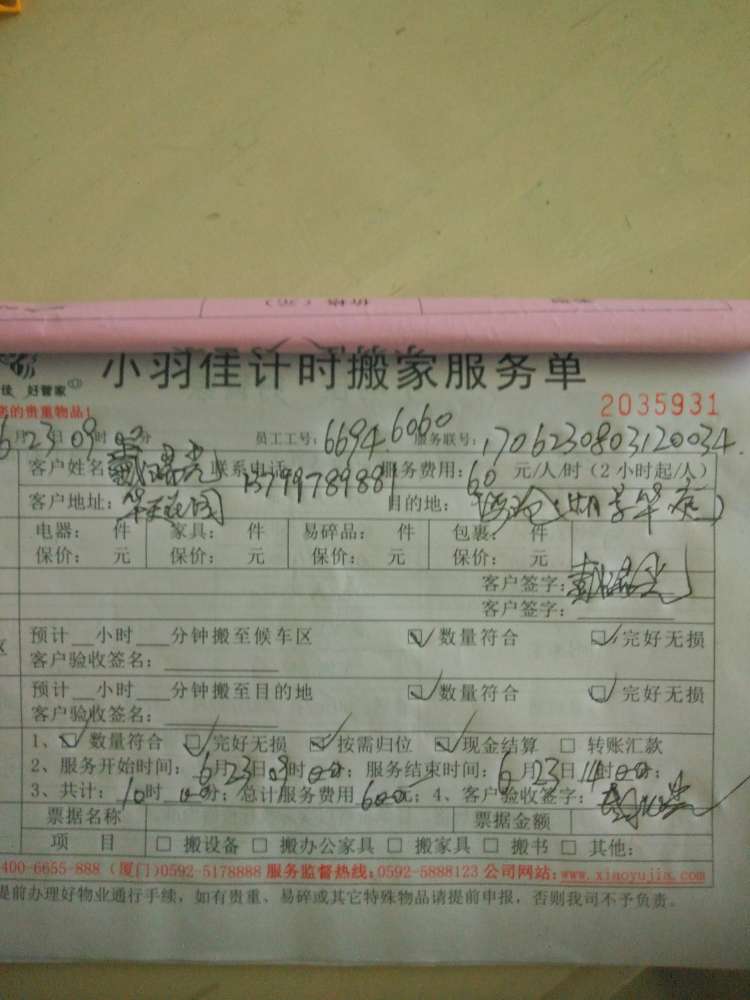 小羽佳计时搬家服务单
好管家
的贵重物品!
2035931
6月23日09时00分 员工工号:6694.6060 服务联号:1706230803120034
客户姓名 联系电话 13799789881 服务费用:60 元/人/时(2小时起/人)
客户地址: 目的地:
电器: 件 家具: 件 易碎品: 件 包裹: 件
保价: 元 保价: 元 保价: 元 保价: 元
客户签字:
客户签字:
预计__小时___分钟搬至候车区 ☑数量符合 ☑完好无损
客户验收签名:
预计__小时___分钟搬至目的地 ☑数量符合 ☑完好无损
客户验收签名:
1、☑数量符合 ☑完好无损 ☑按需归位 ☑现金结算 □ 转账汇款
2、服务开始时间:6月23日09时00分;服务结束时间:6月23日14时00分;
3、共计:10时00分;总计服务费用600元;4、客户验收签字:
票据名称 票据金额
项 目 □ 搬设备 □ 搬办公家具 □ 搬家具 □ 搬书 □ 其他:
400-6655-888(厦门)0592-5178888 服务监督热线:0592-5888123 公司网站:www.xiaoyujia.com
提前办理好物业通行手续,如有贵重、易碎或其它特殊物品请提前申报,否则我司不予负责。